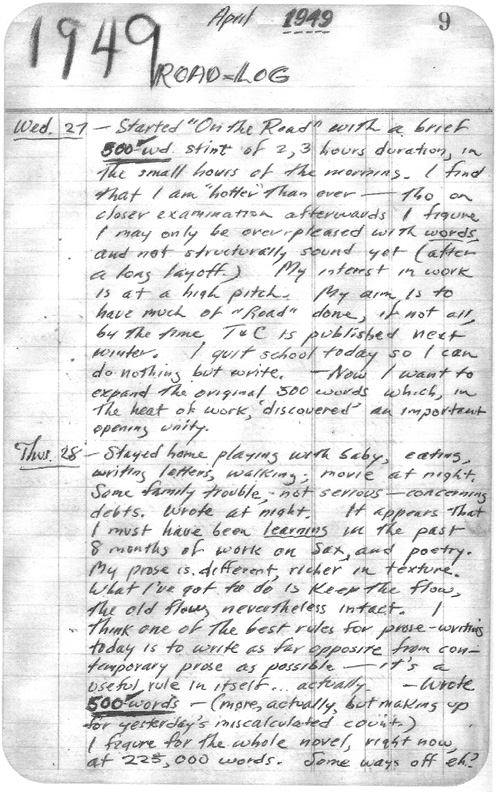 April 1949 9
1949
ROAD-LOG
Wed. 27 — Started "On the Road" with a brief
500-wd. stint of 2, 3 hours duration, in
the small hours of the morning. I find
that I am "hotter" than ever — tho on
closer examination afterwards I figure
I may only be over-pleased with words,
and not structurally sound yet (after
a long layoff.) My interest in work
is at a high pitch. My aim is to
have much of "Road" done, if not all,
by the time T&C is published next
winter. I quit school today so I can
do nothing but write. — Now I want to
expand the original 500 words which, in
the heat of work, 'discovered' an important
opening unity.
Thus. 28 — Stayed home playing with baby, eating,
writing letters, walking; movie at night.
Some family trouble, not serious — concerning
debts. Wrote at night. It appears that
I must have been learning in the past
8 months of work on Sax, and poetry.
My prose is different, richer in texture.
What I've got to do is keep the flow,
the old flow, nevertheless intact. I
think one of the best rules for prose-writing
today is to write as far opposite from con-
temporary prose as possible — it's a
useful rule in itself... actually. — Wrote
500-words — (more, actually, but making up
for yesterday's miscalculated count.)
I figure for the whole novel, right now,
at 225,000 words. Some ways off eh?